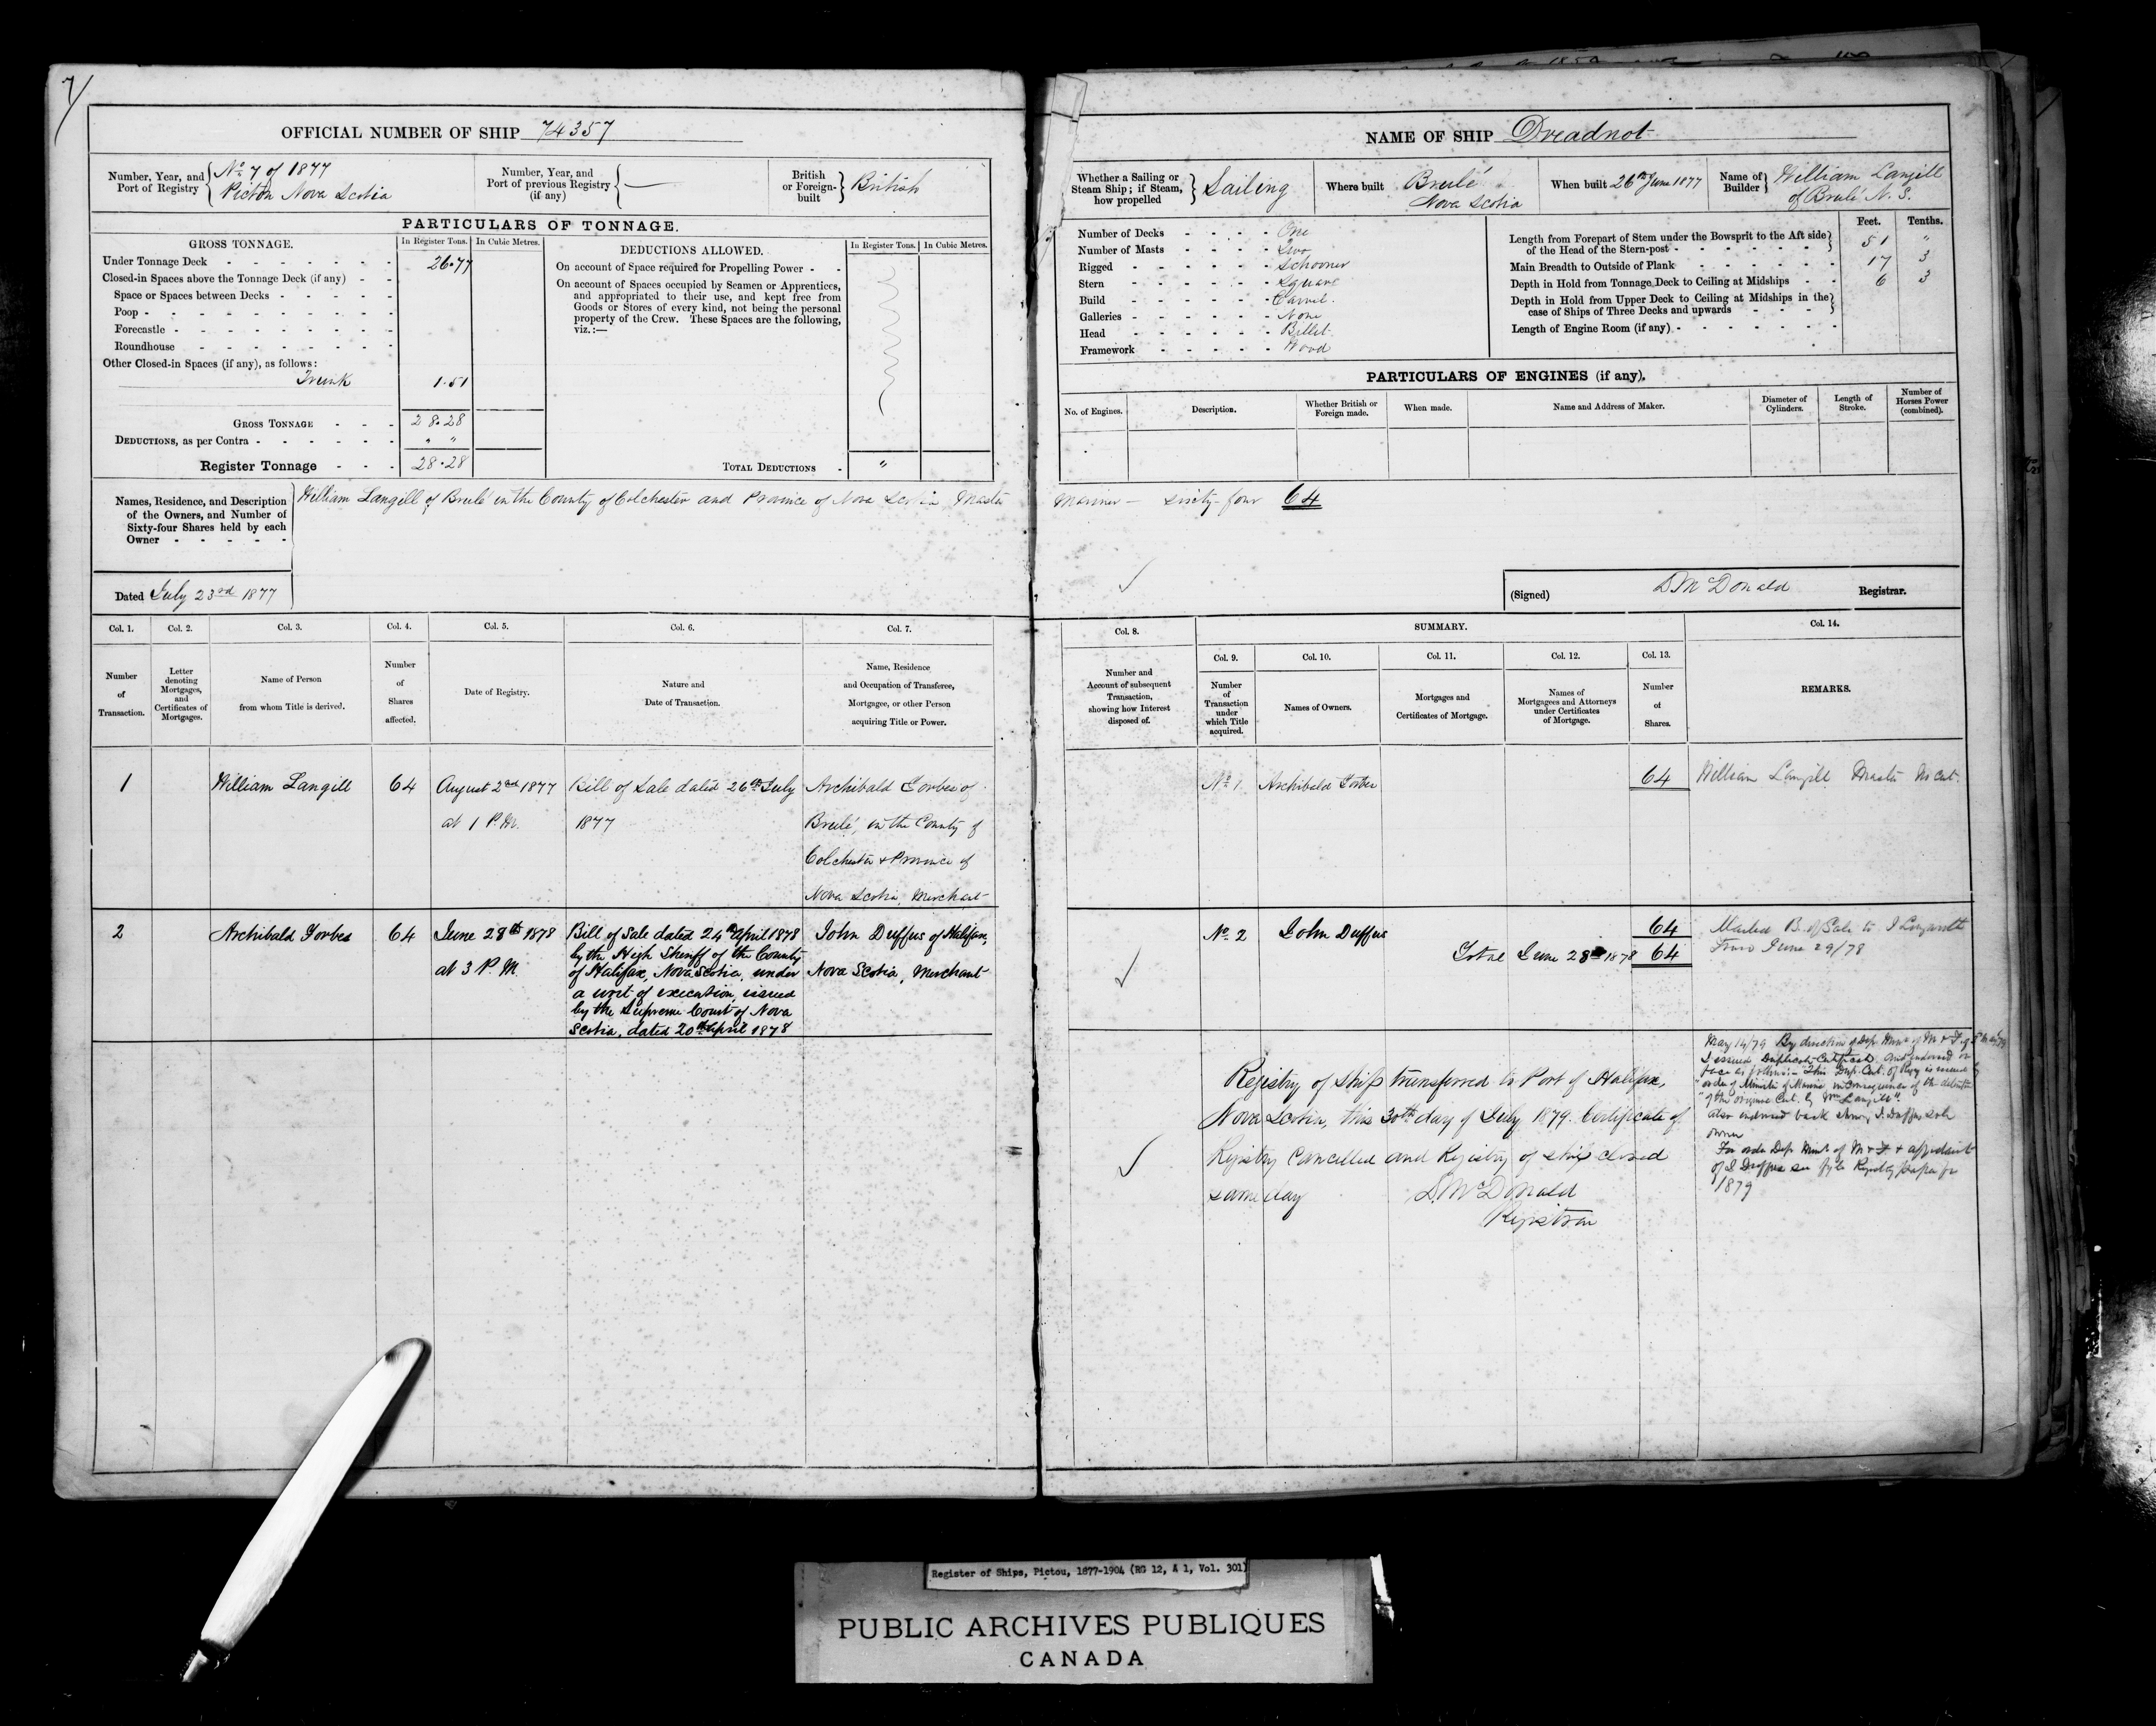 7/
OFFICIAL NUMBER OF SHIP 74357
Number, Year, and Port of Registry
No 7 of 1877
Pictou Nova Scotia
Number, Year, and Port of previous Registry (if any) —
British or Foreign-built
British
PARTICULARS OF TONNAGE.
GROSS TONNAGE.
In Register Tons.
In Cubic Metres.
Under Tonnage Deck - 26.77
Closed-in Spaces above the Tonnage Deck (if any) - -
Space or Spaces between Decks - - - - -
Poop - - - - - - - - -
Forecastle - - - - - - - -
Roundhouse - - - - - - -
Other Closed-in Spaces (if any), as follows:
Trunk 1.51
GROSS TONNAGE - - - 28.28
DEDUCTIONS, as per Contra - - - - - - " "
Register Tonnage - - - 28.28
DEDUCTIONS ALLOWED.
In Register Tons.
In Cubic Metres.
On account of Space required for Propelling Power - -
On account of Spaces occupied by Seamen or Apprentices,
and appropriated to their use, and kept free from
Goods or Stores of every kind, not being the personal
property of the Crew. These Spaces are the following,
viz.:—
TOTAL DEDUCTIONS - "
Names, Residence, and Description
of the Owners, and Number of
Sixty-four Shares held by each
Owner - - - - -
William Langill of Brulé in the County of Colchester and Province of Nova Scotia Master
Dated July 23rd 1877
Col. 1.
Number of Transaction.
Col. 2.
Letter denoting Mortgages, and Certificates of Mortgages.
Col. 3.
Name of Person from whom Title is derived.
Col. 4.
Number of Shares affected.
Col. 5.
Date of Registry.
Col. 6.
Nature and Date of Transaction.
Col. 7.
Name, Residence and Occupation of Transferee, Mortgagee, or other Person acquiring Title or Power.
1
William Langill
64
August 2nd 1877
at 1 P.M.
Bill of Sale dated 26th July
1877
Archibald Forbes of
Brulé, in the County of
Colchester & Province of
Nova Scotia, Merchant
2
Archibald Forbes
64
June 28th 1878
at 3 P.M.
Bill of Sale dated 24th April 1878
by the High Sheriff of the County
of Halifax, Nova Scotia, under
a writ of execution, issued
by the Supreme Court of Nova
Scotia, dated 20th April 1878
John Duffus of Halifax,
Nova Scotia, Merchant
NAME OF SHIP Dreadnot
Whether a Sailing or Steam Ship; if Steam, how propelled
Sailing
Where built
Brulé
Nova Scotia
When built 26th June 1877
Name of Builder
William Langill
of Brulé N.S.
Number of Decks - - - - One
Number of Masts - - - - Two
Rigged - - - - - Schooner
Stern - - - - - Square
Build - - - - - Carvel.
Galleries - - - - - None
Head - - - - - Billet
Framework - - - - - Wood
Feet.
Tenths.
Length from Forepart of Stem under the Bowsprit to the Aft side
of the Head of the Stern-post - 51 "
Main Breadth to Outside of Plank - 17 3
Depth in Hold from Tonnage Deck to Ceiling at Midships - - 6 3
Depth in Hold from Upper Deck to Ceiling at Midships in the
case of Ships of Three Decks and upwards - - - -
Length of Engine Room (if any) - - - - - -
PARTICULARS OF ENGINES (if any).
No. of Engines.
Description.
Whether British or Foreign made.
When made.
Name and Address of Maker.
Diameter of Cylinders.
Length of Stroke.
Number of Horses Power (combined).
Mariner — Sixty-four 64
(Signed) D McDonald Registrar.
Col. 8.
Number and Account of subsequent Transaction, showing how Interest disposed of.
SUMMARY.
Col. 9.
Number of Transaction under which Title acquired.
Col. 10.
Names of Owners.
Col. 11.
Mortgages and Certificates of Mortgage.
Col. 12.
Names of Mortgagees and Attorneys under Certificates of Mortgage.
Col. 13.
Number of Shares.
Col. 14.
REMARKS.
No 1
Archibald Forbes
64
William Langill Master
No 2
John Duffus
64
Total June 28th 1878 64
Mailed B. of Sale to
June 29/78
Registry of Ship transferred to Port of Halifax,
Nova Scotia, this 30th day of July 1879. Certificate of
Registry Cancelled and Registry of Ship closed
same day
D. McDonald
Registrar
May 14/79 By direction of Dep. Minr of M & F
I issued Duplicate Certificate and endorsed on
face as follows:- This Dup. Cert. of Regy is issued by
order of Minister of Marine in consequence of the
"of the original Cert. by Wm Langill"
also endorsed back J. Duffus sole
owner
For order Dep Minr of M & F & affidavit
of J Duffus see Registry papers for
1879
Register of Ships, Pictou, 1877-1904 (RG 12, A 1, Vol. 301)
PUBLIC ARCHIVES PUBLIQUES
CANADA